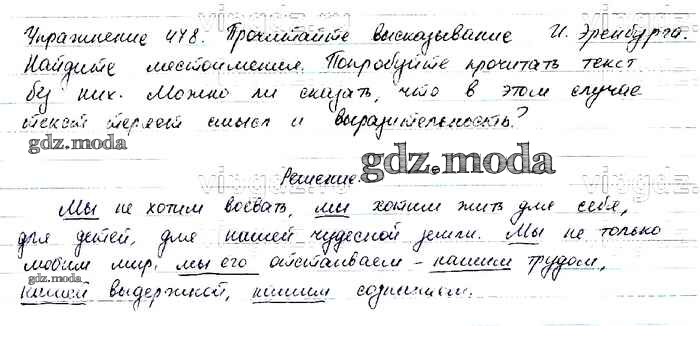 Упражнение 478. Прочитайте высказывание И. Эренбурга.
Найдите местоимения. Попробуйте прочитать текст
без них. Можно ли сказать, что в этом случае
текст теряет смысл и выразительность?
gdz.moda
gdz.moda
Решение.
Мы не хотим воевать, мы хотим жить для себя,
для детей, для нашей чудесной земли. Мы не только
любим мир, мы его отстаиваем – нашим трудом,
gdz.moda
нашей выдержкой, нашим сознанием.